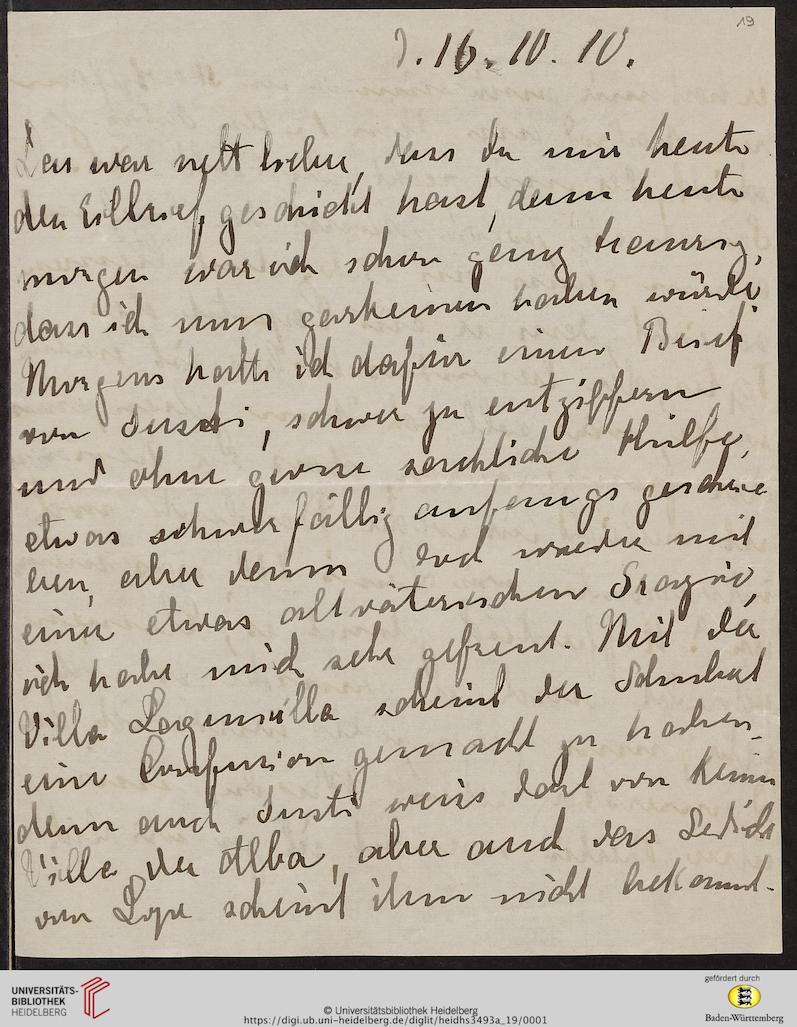 19
J. 16. 10. 10.
Das war nett lieber, dass du mir heute
den Eilbrief geschickt hast, denn heute
morgen war ich schon ganz traurig,
dass ich nun garkeinen haben würde
Morgens hatte ich dafür einen Brief
von Justi, schwer zu entziffern
und ohne grosse sachliche Hülfe,
etwas schwerfällig anfangs geschrie
ben, aber dann und wieder mit
einer etwas altväterischen Grazie,
ich habe mich sehr gefreut. Mit der
Villa Lagunilla scheint der Schubert
eine Confusion gemacht zu haben,
denn auch Justi weiss dort von keiner
Villa der Alba, aber auch das Gedicht
von Lope scheint ihm nicht bekannt.
UNIVERSITÄTS-
BIBLIOTHEK
HEIDELBERG
© Universitätsbibliothek Heidelberg
https://digi.ub.uni-heidelberg.de/diglit/heidhs3493a_19/0001
gefördert durch
Baden-Württemberg